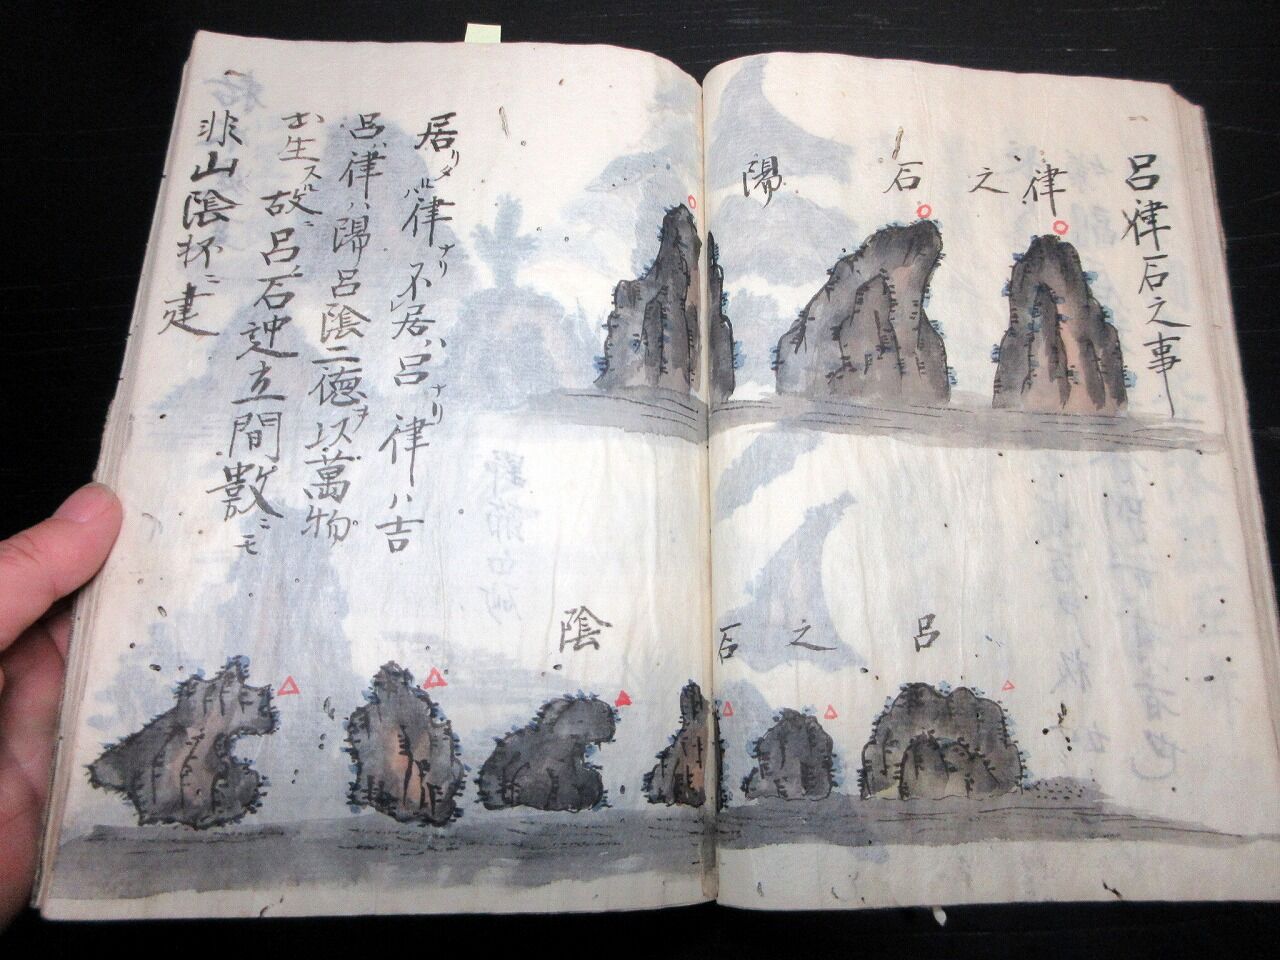 呂律石之事
律之石 陽
呂之石 陰
居リタルハ律ナリ不居ハ呂ナリ律ハ吉
呂ハ律ハ陽呂陰二徳ヲ以萬物
出生スル故ニ呂石
立間敷ニモ
非山陰抔ニ建